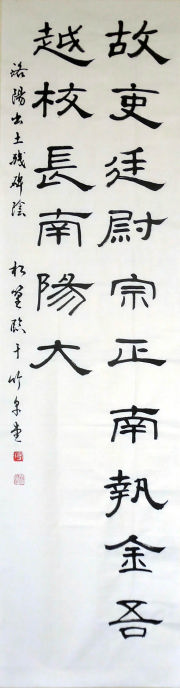 故吏廷尉宗正南執金吾
越校長南陽大
洛陽出土殘碑陰 松篁臨于竹泉堂